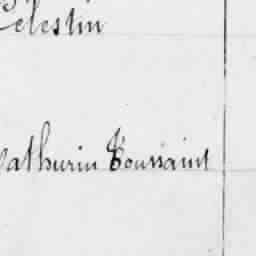 Celestin
Mathurin Toussaint